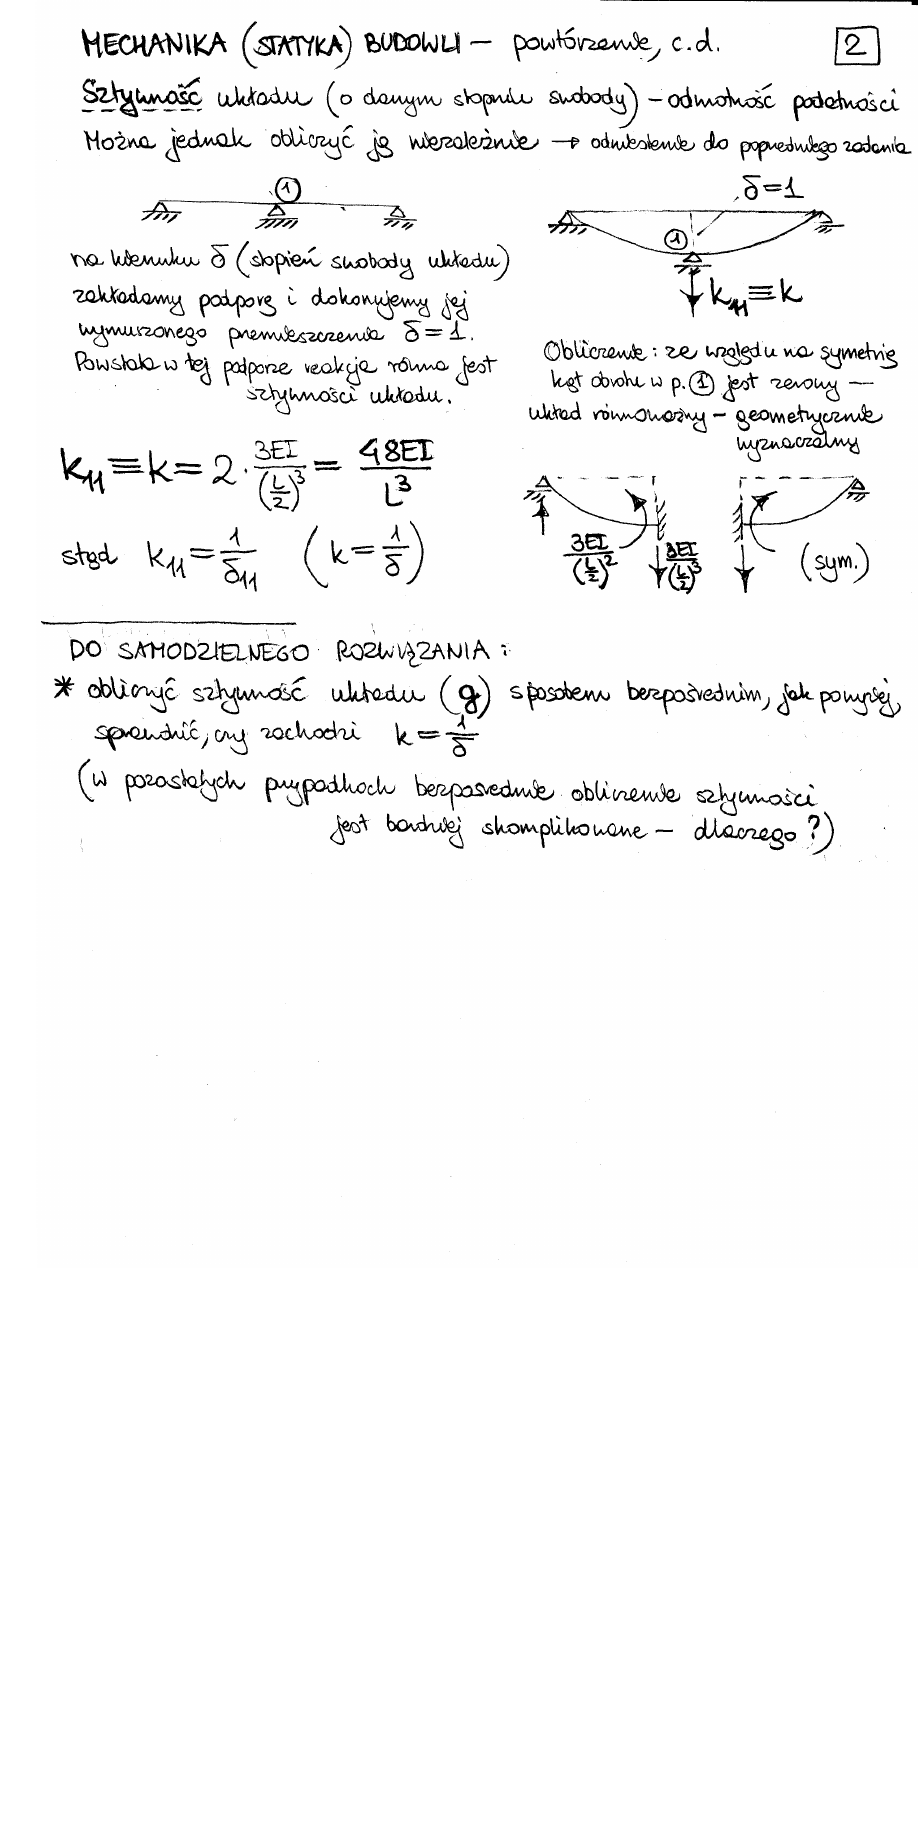 MECHANIKA (STATYKA) BUDOWLI – powtórzenie, c.d.
2
Sztywność układu (o danym stopniu swobody) – odwrotność podatności
Można jednak obliczyć ją niezależnie → odniesienie do poprzedniego zadania
1
δ=1
1
k₁₁≡k
na kierunku δ (stopień swobody układu)
zakładamy podporę i dokonujemy jej
wymuszonego przemieszczenia δ=1.
Powstała w tej podporze reakcja równa jest
sztywności układu.
Obliczenie: ze względu na symetrię
kąt obrotu w p. ① jest zerowy –
układ równoważny – geometrycznie
wyznaczalny
k₁₁≡k=2·3EI/(L/2)³=48EI/L³
stąd k₁₁=1/δ₁₁ (k=1/δ)
3EI/(L/2)²
3EI/(L/2)³
(sym.)
DO SAMODZIELNEGO ROZWIĄZANIA:
* obliczyć sztywność układu (g) sposobem bezpośrednim, jak powyżej,
sprawdzić, czy zachodzi k=1/δ
(w pozostałych przypadkach bezpośrednie obliczenie sztywności
jest bardziej skomplikowane – dlaczego?)